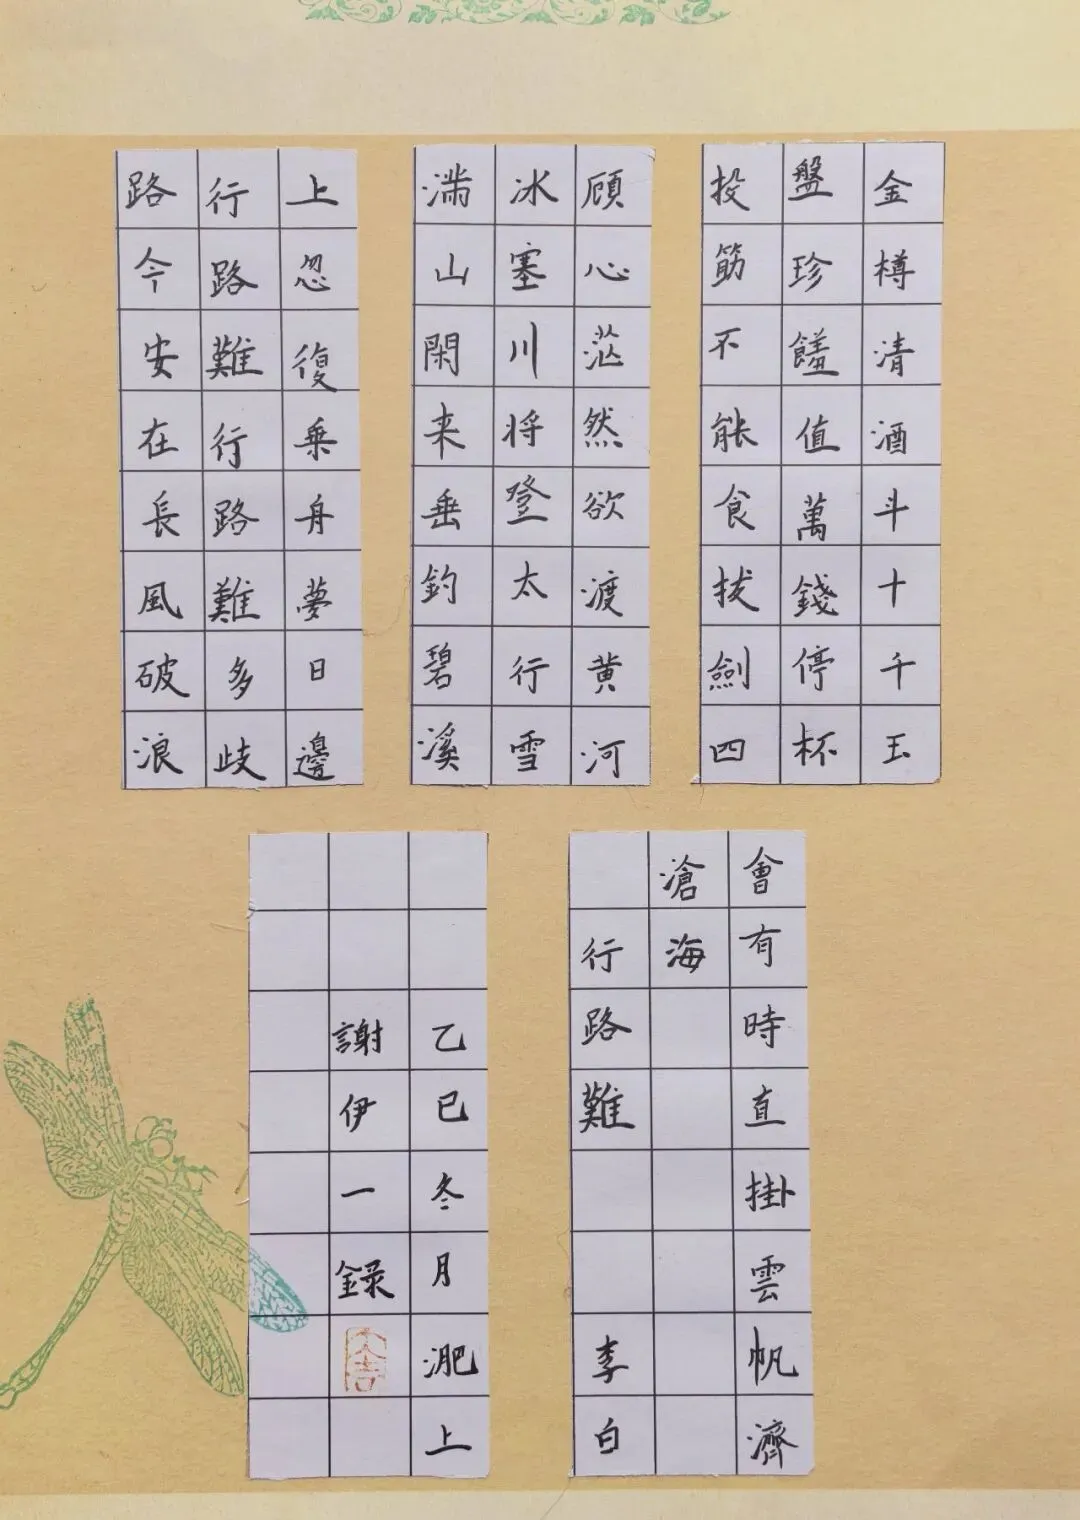 金樽清酒斗十千玉
盤珍饈值萬錢停杯
投筯不能食拔劍四
顧心茫然欲渡黄河
冰塞川将登太行雪
满山閑来垂釣碧溪
上忽復乗舟夢日邊
行路難行路難多歧
路今安在長風破浪
會有時直掛雲帆濟
滄海
行路難 李白
乙巳冬月淝上
謝伊一録
大吉